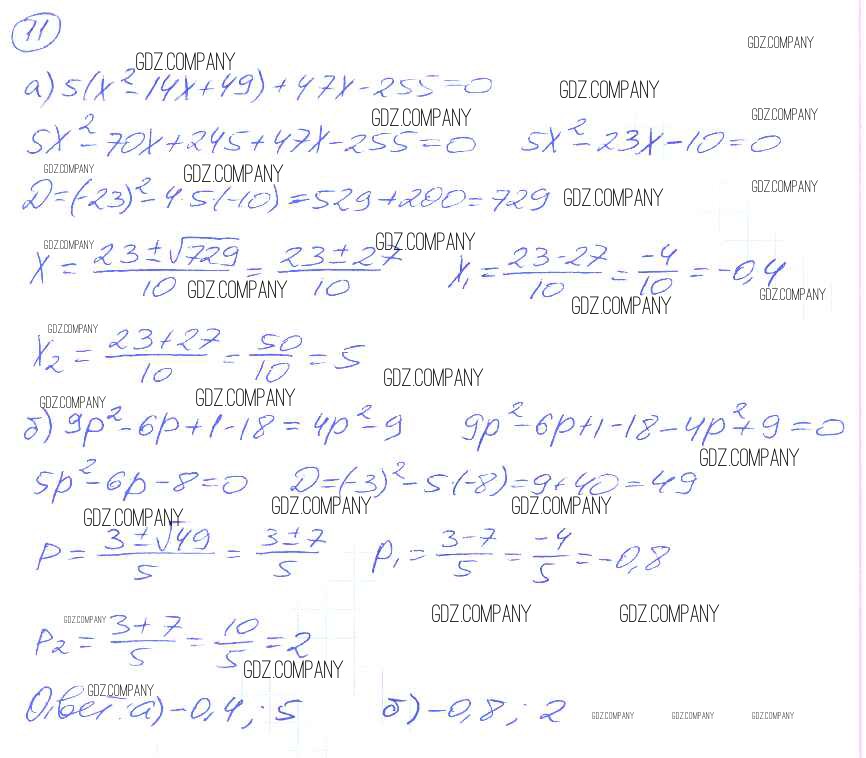 11
GDZ.COMPANY GDZ.COMPANY
а) 5(x²-14x+49)+47x-255=0 GDZ.COMPANY
GDZ.COMPANY GDZ.COMPANY
5x²-70x+245+47x-255=0 5x²-23x-10=0
GDZ.COMPANY GDZ.COMPANY
D=(-23)²-4·5(-10)=529+200=729 GDZ.COMPANY GDZ.COMPANY
GDZ.COMPANY GDZ.COMPANY
x = (23±√729)/10 = (23±27)/10 x₁ = (23-27)/10 = -4/10 = -0,4
GDZ.COMPANY GDZ.COMPANY GDZ.COMPANY
GDZ.COMPANY
x₂ = (23+27)/10 = 50/10 = 5
GDZ.COMPANY
GDZ.COMPANY GDZ.COMPANY
б) 9p²-6p+1-18=4p²-9 9p²-6p+1-18-4p²+9=0
GDZ.COMPANY
5p²-6p-8=0 D=(-3)²-5(-8)=9+40=49
GDZ.COMPANY GDZ.COMPANY GDZ.COMPANY
p = (3±√49)/5 = (3±7)/5 p₁ = (3-7)/5 = -4/5 = -0,8
GDZ.COMPANY GDZ.COMPANY GDZ.COMPANY
p₂ = (3+7)/5 = 10/5 = 2
GDZ.COMPANY
GDZ.COMPANY
Ответ: а) -0,4; 5 б) -0,8; 2 GDZ.COMPANY GDZ.COMPANY GDZ.COMPANY